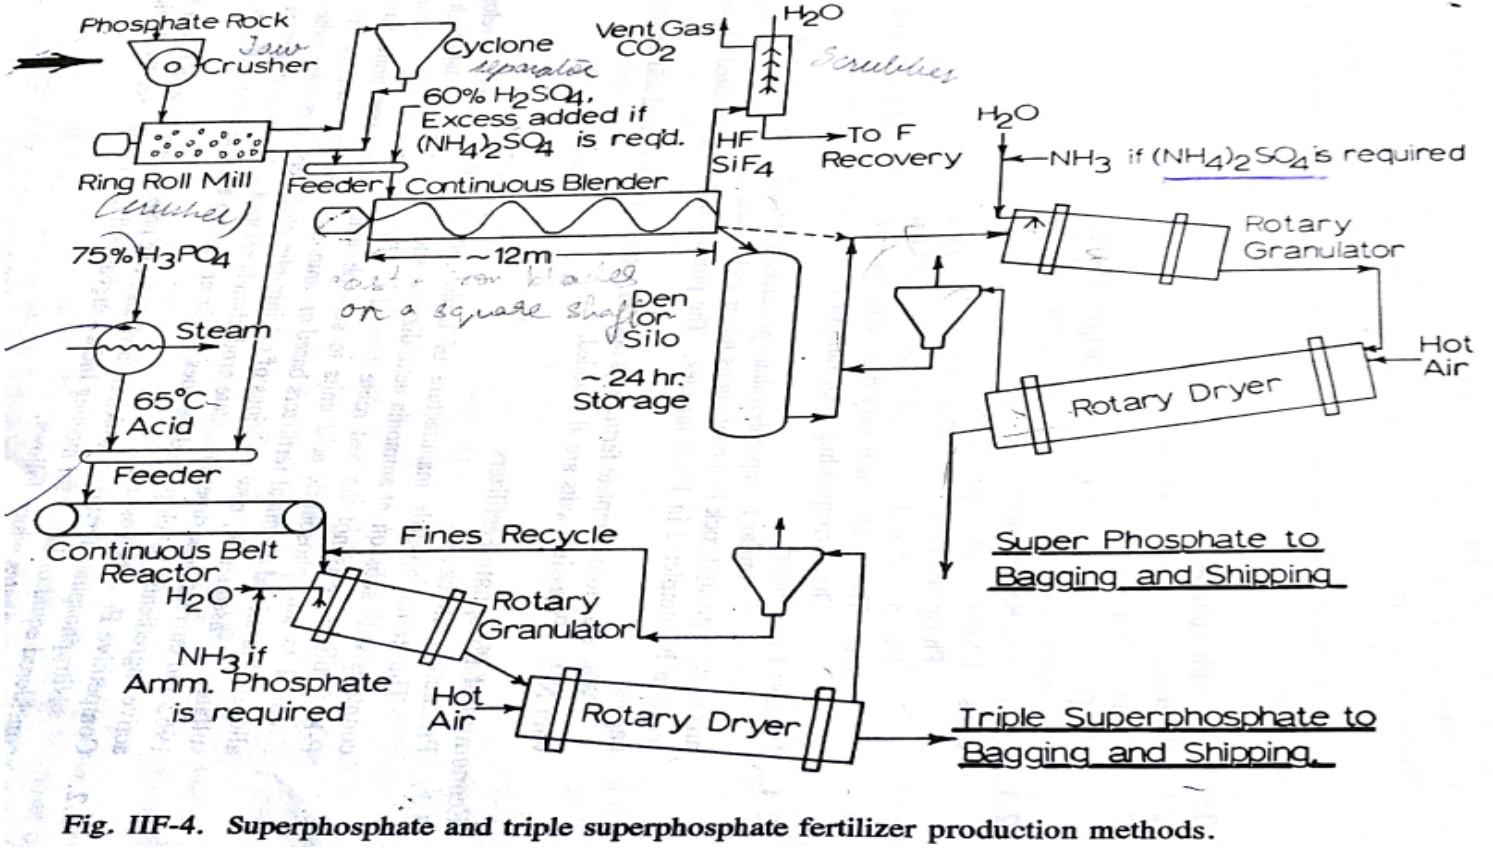 Phosphate Rock
Jaw
Crusher
Cyclone
separator
60% H₂SO₄,
Excess added if
(NH₄)₂SO₄ is req'd.
Ring Roll Mill
(crusher)
Feeder
Continuous Blender
~12m
on a square shaft
Vent Gas
CO₂
H₂O
Scrubber
HF
SiF₄
To F
Recovery
H₂O
NH₃ if (NH₄)₂SO₄ is required
Rotary
Granulator
Hot
Air
Rotary Dryer
Den
or
Silo
~24 hr.
Storage
Super Phosphate to
Bagging and Shipping
75% H₃PO₄
Steam
65°C
Acid
Feeder
Continuous Belt
Reactor
Fines Recycle
H₂O
NH₃ if
Amm. Phosphate
is required
Rotary
Granulator
Hot
Air
Rotary Dryer
Triple Superphosphate to
Bagging and Shipping.
Fig. IIF-4. Superphosphate and triple superphosphate fertilizer production methods.